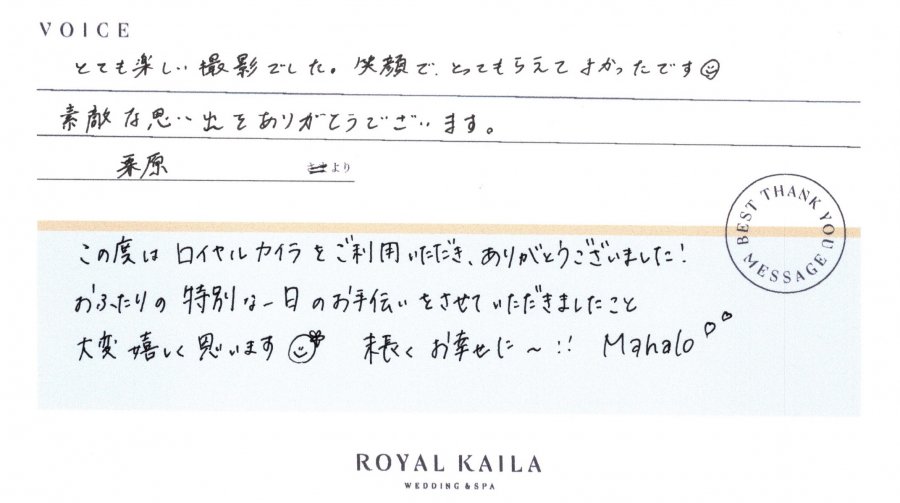 VOICE
とても楽しい撮影でした。笑顔で、とってもらえてよかったです
素敵な思い出をありがとうでございます。
栗原 さま より
BEST THANK YOU MESSAGE
この度はロイヤルカイラをご利用いただき、ありがとうございました!
おふたりの特別な一日のお手伝いをさせていただきましたこと
大変嬉しく思います 末長くお幸せに〜!! Mahalo♡♡
ROYAL KAILA
WEDDING & SPA